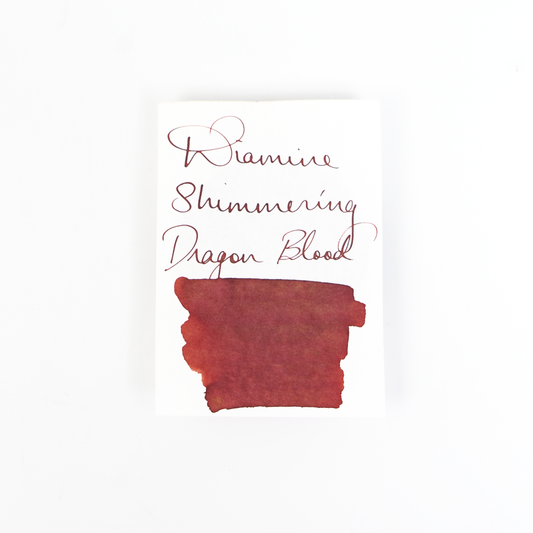 Diamine
Shimmering
Dragon Blood